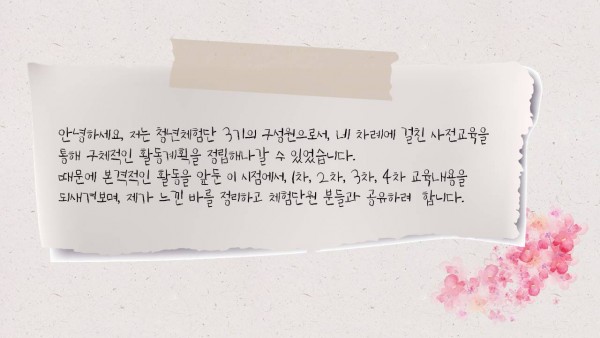 안녕하세요, 저는 청년체험단 3기의 구성원으로서, 네 차례에 걸친 사전교육을
통해 구체적인 활동계획을 정립해나갈 수 있었습니다.
때문에 본격적인 활동을 앞둔 이 시점에서, 1차, 2차, 3차, 4차 교육내용을
되새겨보며, 제가 느낀 바를 정리하고 체험단원 분들과 공유하려 합니다.